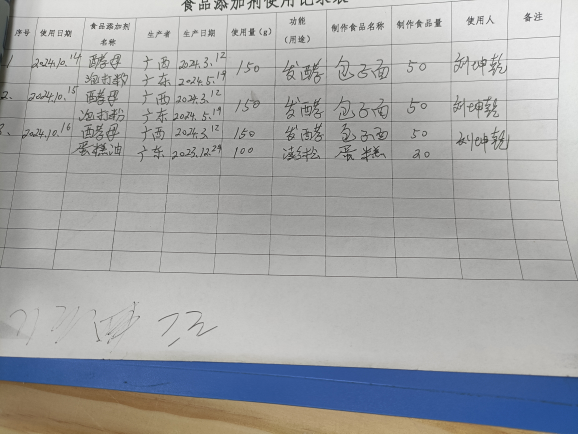 食品添加剂使用记录表
序号 使用日期 食品添加剂名称 生产者 生产日期 使用量(g) 功能(用途) 制作食品名称 制作食品量 使用人 备注
1 2024.10.14 酵母 广西 2024.3.12 150 发酵 包子面 50 刘坤乾
泡打粉 广东 2024.5.19
2、 2024.10.15 酵母 广西 2024.3.12 150 发酵 包子面 50 刘坤乾
泡打粉 广东 2024.5.19
3、 2024.10.16 酵母 广西 2024.3.12 150 发酵 包子面 50 刘坤乾
蛋糕油 广东 2023.12.29 100 澎松 蛋糕 20